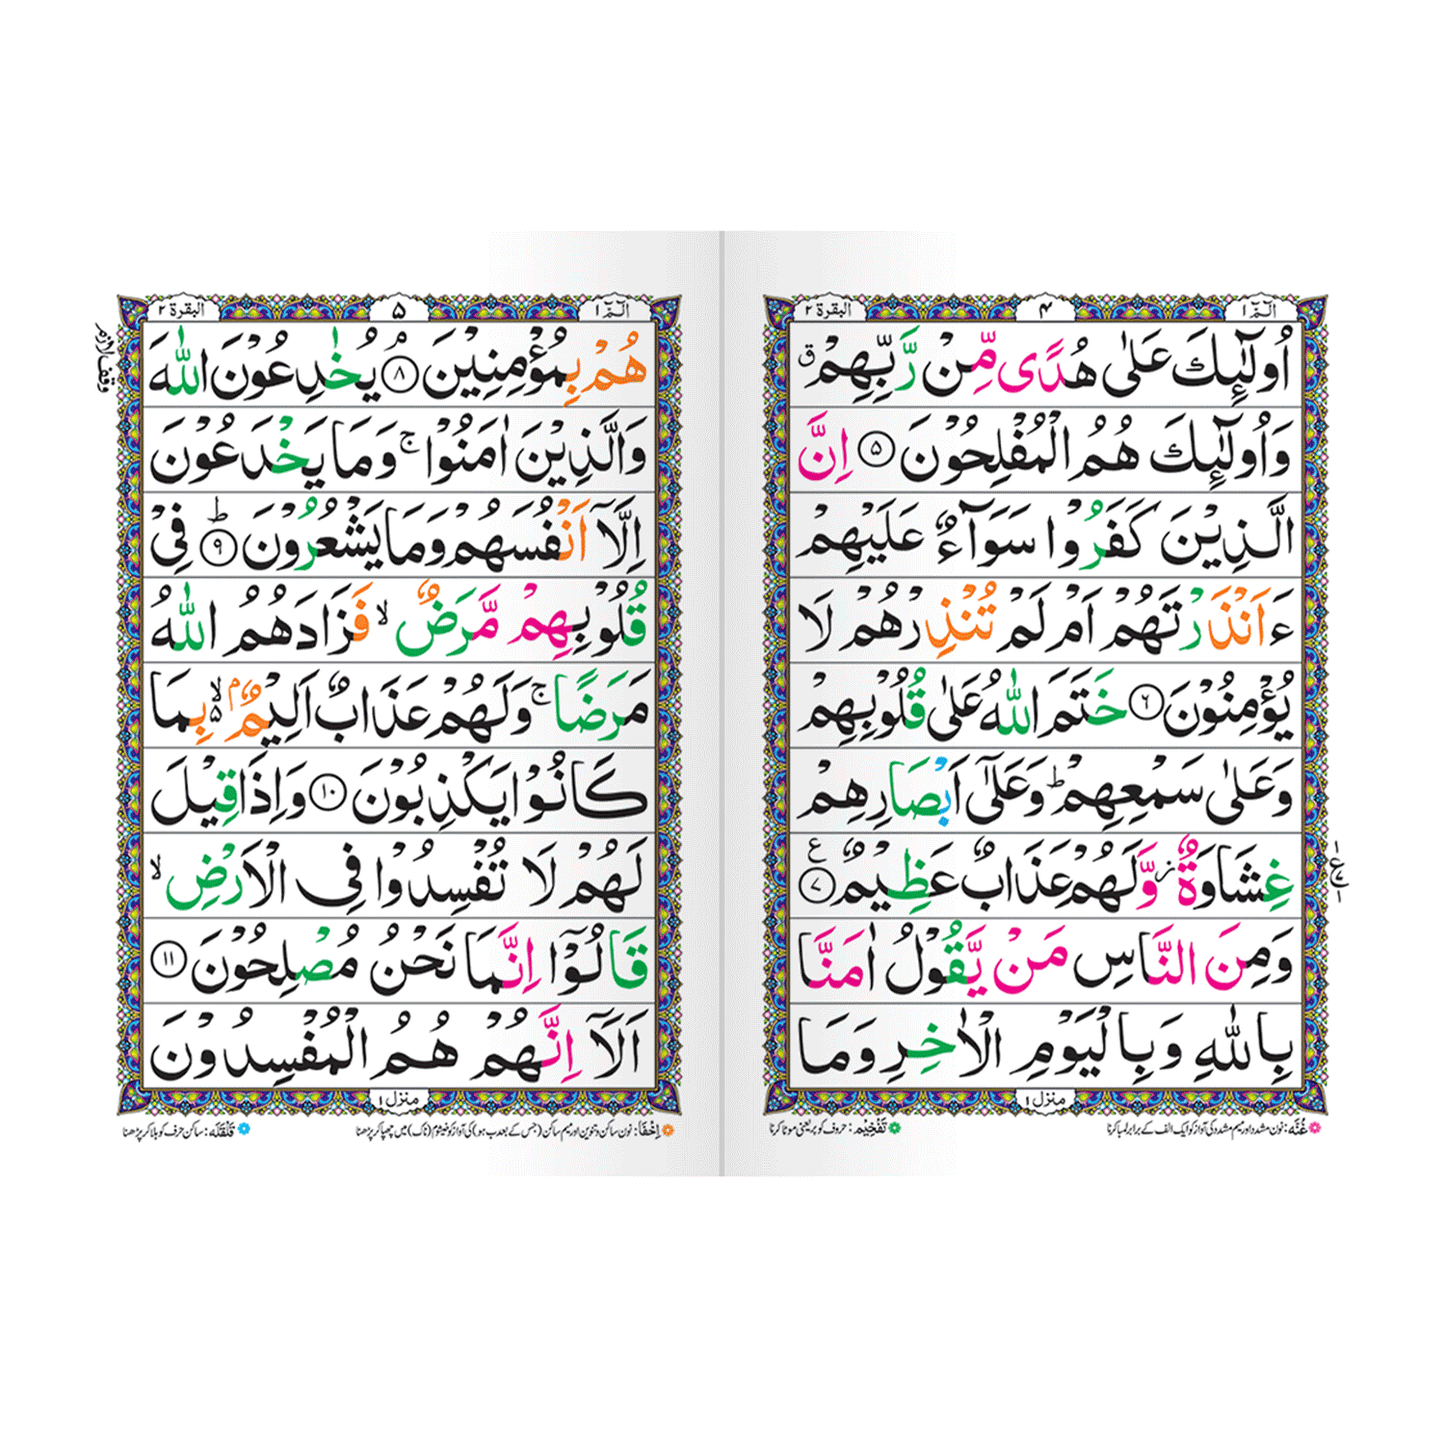 الٓمّٓ ١
۴
البقرة ٢
اُولٰٓئِكَ عَلٰى هُدًى مِّنْ رَّبِّهِمْ ق
وَاُولٰٓئِكَ هُمُ الْمُفْلِحُوْنَ ۵ اِنَّ
الَّذِيْنَ كَفَرُوْا سَوَآءٌ عَلَيْهِمْ
ءَاَنْذَرْتَهُمْ اَمْ لَمْ تُنْذِرْهُمْ لَا
يُؤْمِنُوْنَ ۶ خَتَمَ اللّٰهُ عَلٰى قُلُوْبِهِمْ
وَعَلٰى سَمْعِهِمْ ط وَعَلٰٓى اَبْصَارِهِمْ
غِشَاوَةٌ ز وَّلَهُمْ عَذَابٌ عَظِيْمٌ ۷ ع
وَمِنَ النَّاسِ مَنْ يَّقُوْلُ اٰمَنَّا
بِاللّٰهِ وَبِالْيَوْمِ الْاٰخِرِ وَمَا
منزل ١
غُنَّه: نون مشدد اور میم مشدد کی آواز کو ایک الف کے برابر لمبا کرنا
تَفْخِيْم: حروف کو پُر یعنی موٹا کرنا
الٓمّٓ ١
۵
البقرة ٢
هُمْ بِمُؤْمِنِيْنَ ۘ ۸ يُخٰدِعُوْنَ اللّٰهَ
وَالَّذِيْنَ اٰمَنُوْا ج وَمَا يَخْدَعُوْنَ
اِلَّآ اَنْفُسَهُمْ وَمَا يَشْعُرُوْنَ ط ۹ فِيْ
قُلُوْبِهِمْ مَّرَضٌ لا فَزَادَهُمُ اللّٰهُ
مَرَضًا ج وَلَهُمْ عَذَابٌ اَلِيْمٌۢ لا ۵ بِمَا
كَانُوْا يَكْذِبُوْنَ ١٠ وَاِذَا قِيْلَ
لَهُمْ لَا تُفْسِدُوْا فِى الْاَرْضِ لا
قَالُوْٓا اِنَّمَا نَحْنُ مُصْلِحُوْنَ ١١
اَلَآ اِنَّهُمْ هُمُ الْمُفْسِدُوْنَ
وقف لازم
منزل ١
اِخْفَا: نون ساکن و تنوین اور میم ساکن (جس کے بعد ب ہو) کی آواز کو خیشوم (ناک) میں چھپا کر پڑھنا
قَلْقَلَه: ساکن حرف کو ہلا کر پڑھنا